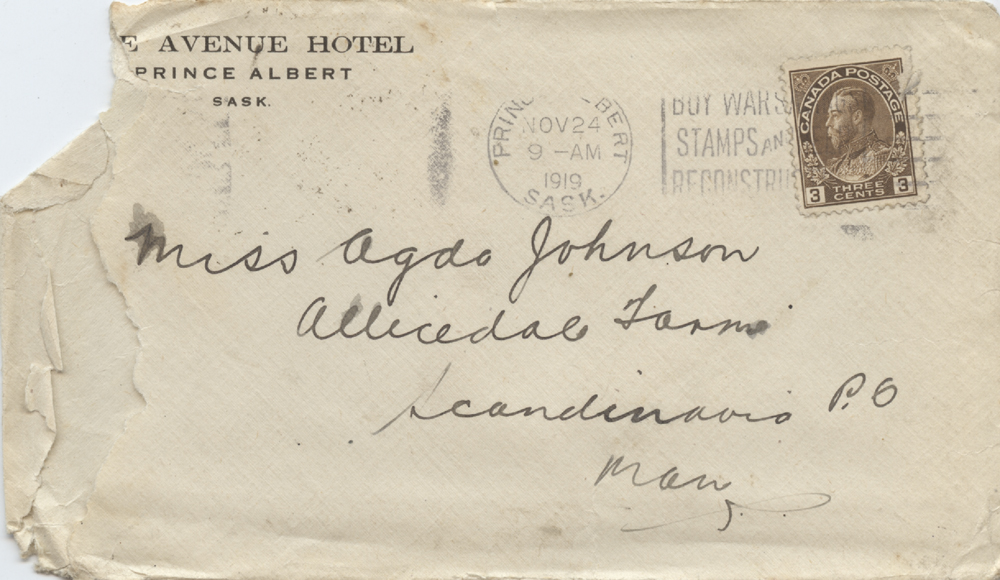 E AVENUE HOTEL
PRINCE ALBERT
SASK.
PRIN BERT
NOV 24
9 -AM
1919
SASK.
BUY WAR S
STAMPS AN
RECONSTRU
CANADA POSTAGE
3 THREE CENTS 3
Miss Agda Johnson
Allicedale Farm
Scandinavia P.O
Man